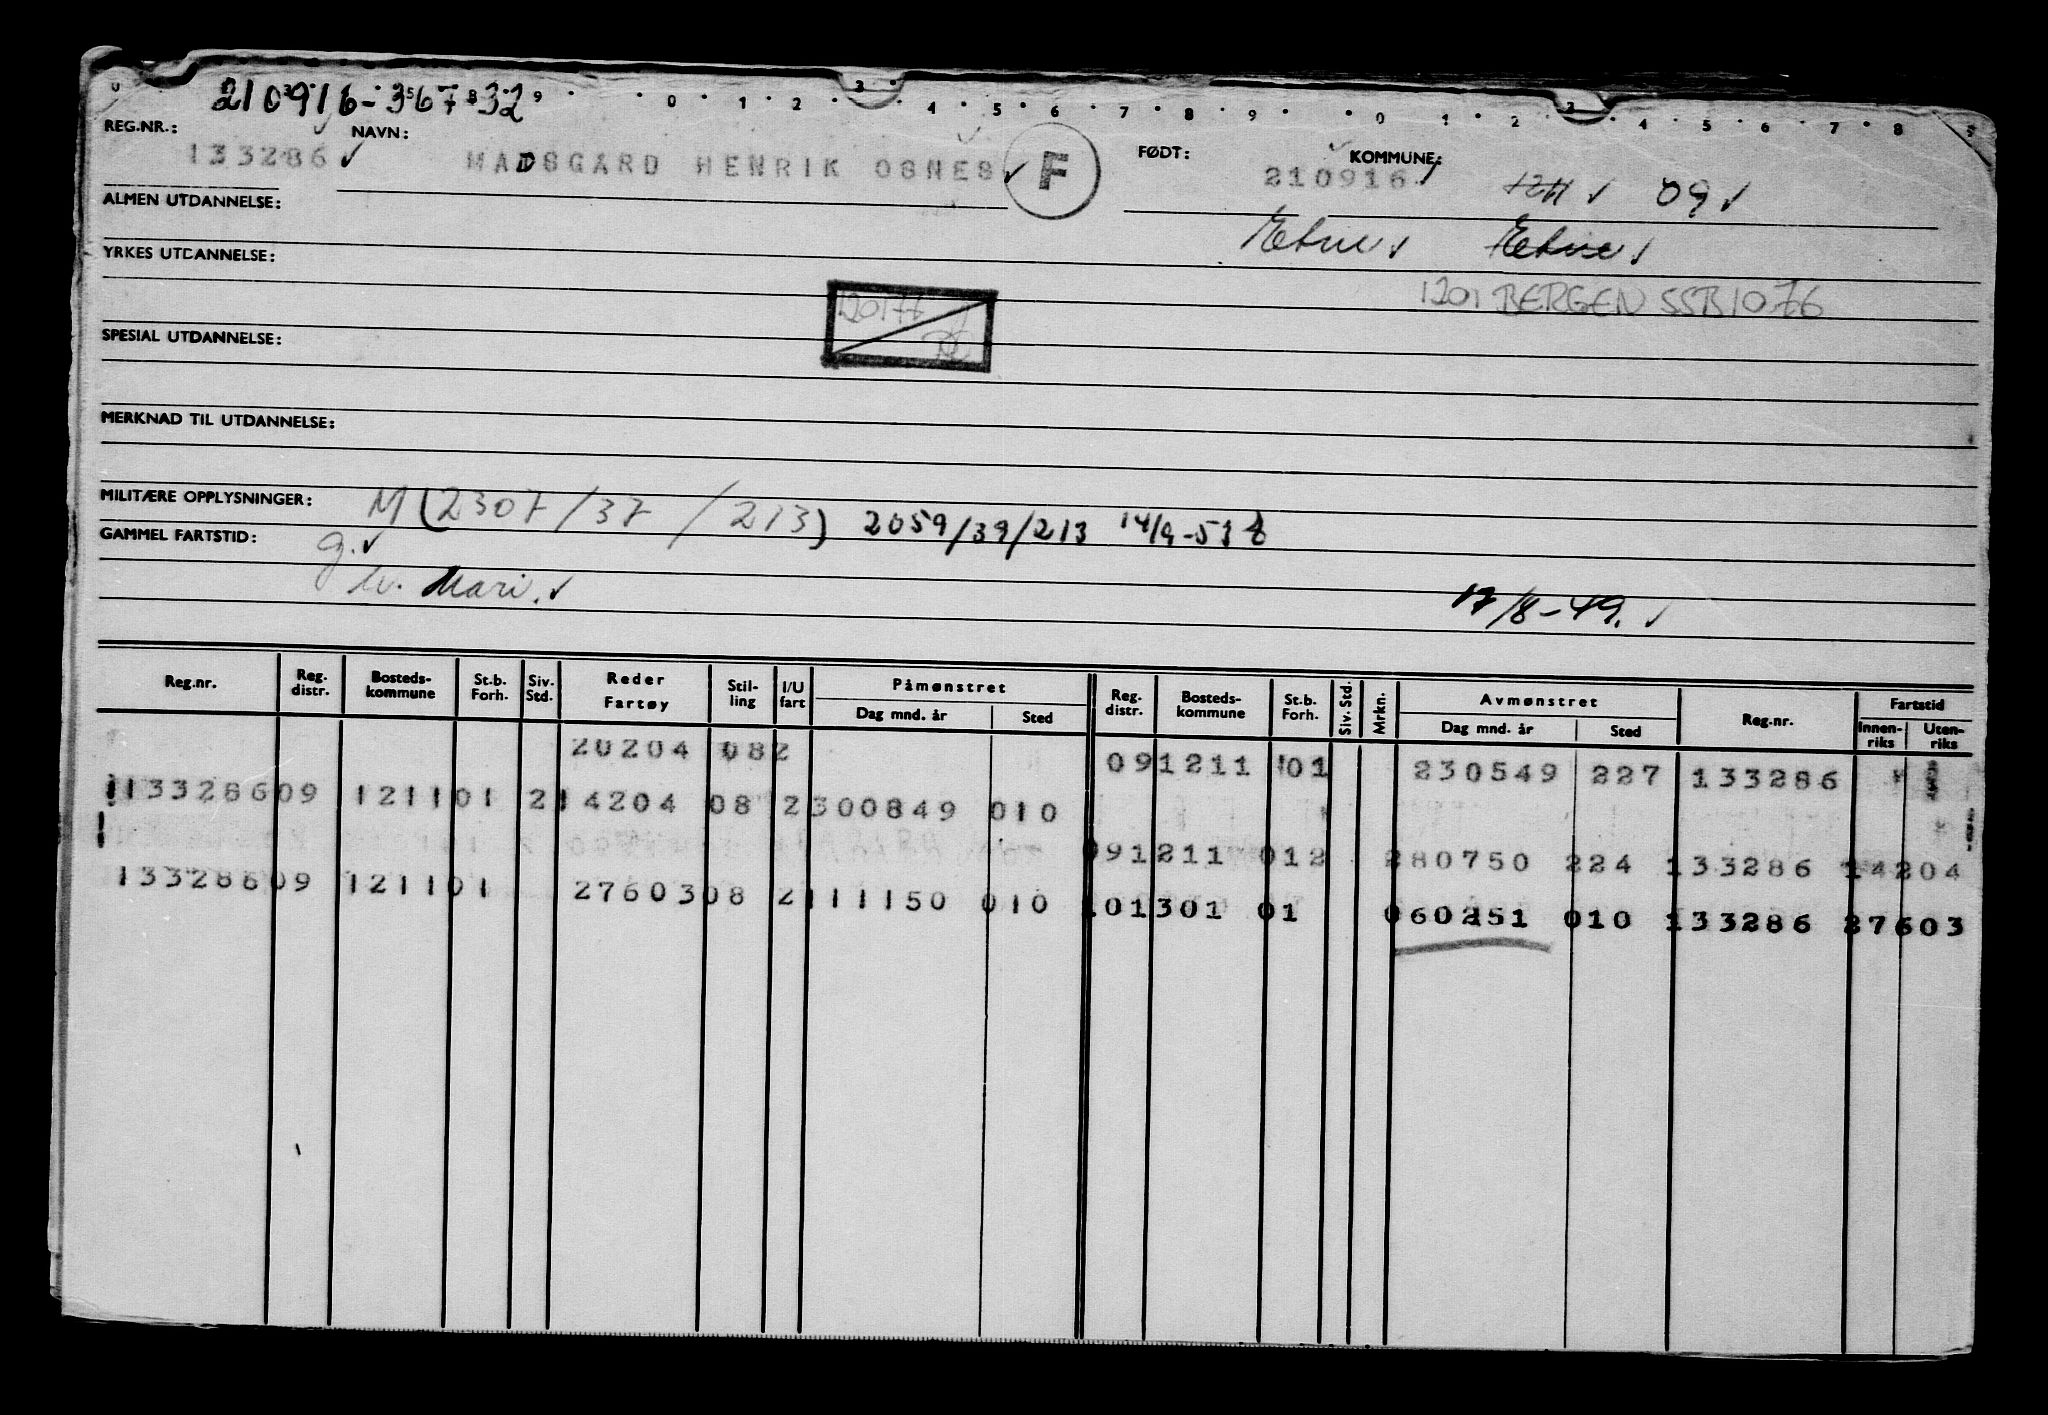 210916-36732
0 1 2 3 4 5 6 7 8 9 0 1 2 3 4 5 6 7 8 9
REG.NR.: 133286 NAVN: MADSGARD HENRIK OSNES F FØDT: 210916 KOMMUNE: 1211 09
ALMEN UTDANNELSE: Etne Etne
YRKES UTDANNELSE:
1201 BERGEN SSB1076
120177
SPESIAL UTDANNELSE:
MERKNAD TIL UTDANNELSE:
MILITÆRE OPPLYSNINGER: M (2307/37/213) 2059/39/213 14/9-51
GAMMEL FARTSTID: g.
h. Mari. 17/8-49.
Reg.nr. Reg. distr. Bosteds-kommune St.b. Forh. Siv. Std. Reder Fartøy Stil-ling I/U fart Påmønstret Dag mnd. år Sted Reg. distr. Bosteds-kommune St.b. Forh. Siv. Std. Mrkn. Avmønstret Dag mnd. år Sted Reg.nr. Fartstid Innen-riks Uten-riks
20204 082 091211 01 230549 227 133286
133286 09 1211 01 2 14204 08 2 300849 010
091211 012 280750 224 133286 14204
133286 09 1211 01 27603 08 2 111150 010 101301 01 060251 010 133286 27603